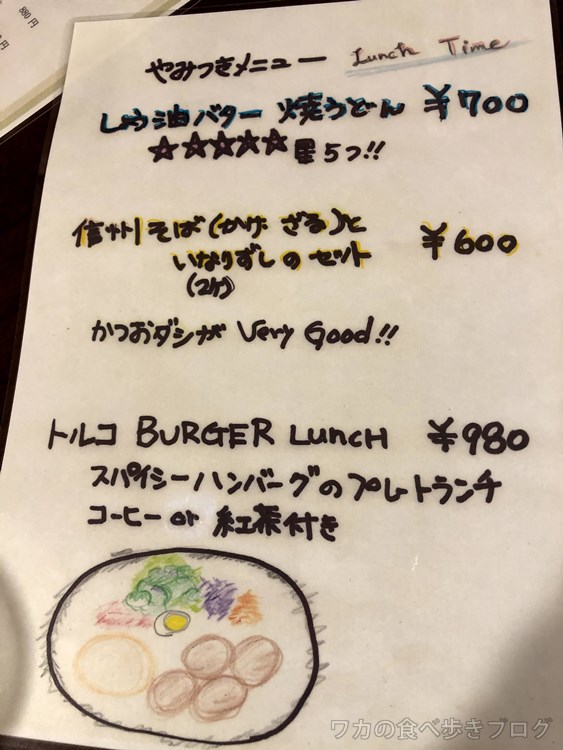 880円
円
やみつきメニュー Lunch Time
しょう油バター 焼うどん ¥700
☆☆☆☆☆ 星5つ!!
信州そば(かけ ざる)と
いなりずしのセット ¥600
(2ケ)
かつおダシが Very Good!!
トルコ BURGER LUNCH ¥980
スパイシーハンバーグのプレートランチ
コーヒー or 紅茶付き
ワカの食べ歩きブログ